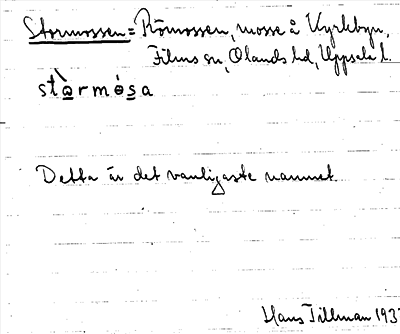 Stormossen = Römossen, mosse å Kyrkbyn,
Films sn, Olands hd, Uppsala l.
stò̱rmós̱a
Detta är det vanligaste namnet.
Hans Tillman 193